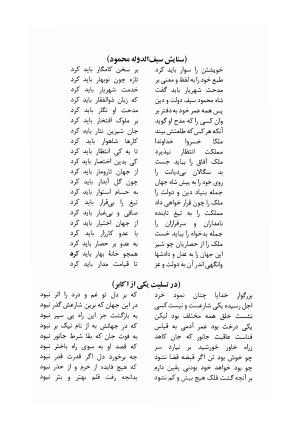 (ستایش سیف‌الدوله محمود)
خویشتن را سوار باید کرد بر سخن کامگار باید کرد
طبع خود را به لفظ و معنی بر تازه چون نوبهار باید کرد
مدحت شهریار باید گفت خدمت شهریار باید کرد
شاه محمود سیف دولت و دین که زبان ذوالفقار باید کرد
پس همه عمر خود به دفتر بر مدحت او نگار باید کرد
وان کسی را که مدح او گوید بر ملوک افتخار باید کرد
آنکه هر کس که طلعتش بیند جان شیرین نثار باید کرد
ملکا خسروا خداوندا کارها شاهوار باید کرد
مملکت انتظار نپذیرد تا به کی انتظار باید کرد
ملک آفاق را بباید جست کی بدین اختصار باید کرد
بد سگالان بی‌دیانت را از جهان تارومار باید کرد
روی خود را به پیش شاه جهان چون گل آبدار باید کرد
جمله بنیاد دین و دولت را به حسام استوار باید کرد
ملک را چون قرار خواهی داد تیغ را بی‌قرار باید کرد
مملکت را به تیغ تابنده صافی و بی‌غبار باید کرد
نامداران و سرفرازان را از جهان اختیار باید کرد
جمله بدخواه را بباید خست با عدو کارزار باید کرد
ملک را از حصاریان چو شیر به عدو بر حصار باید کرد
جهان را به عدل و دادشها همچو خانهٔ بهار باید کرد
وانگهی اندر آن به دولت و عز تا قیامت مدار باید کرد
(در تسلیت یکی از اکابر)
بزرگوار خدایا چنان نمود خرد که بر دل تو غم و درد را اثر نبود
اجل رسیده یکی شارعست و نیست کسی در این جهان که برین شارعش گذر نبود
نشست خلق همه مختلف بود لیکن به بازگشت جز این راه پی سپر نبود
یکی درخت بود عمر آدمی به قیاس که در جهانش به از نام نیک بر نبود
فناست عاقبت جانور که جان کاهد به قوت جان که بقا شرط جانور نبود
زراه خاور خورشید بر نیارد سر که قصد او به سوی راه باختر نبود
چو خوش بود تن اگر قبضه قضا نشود چه برخورد دل اگر قدرت قدر نبود
چو بود خواهد خود بودنی یقین دارم که هیچ فایده از حزم و از حذر نبود
بر آنچه گشت فلک هیچ بیش و کم نشود بدانچه رفت قلم بهتر و بتر نبود